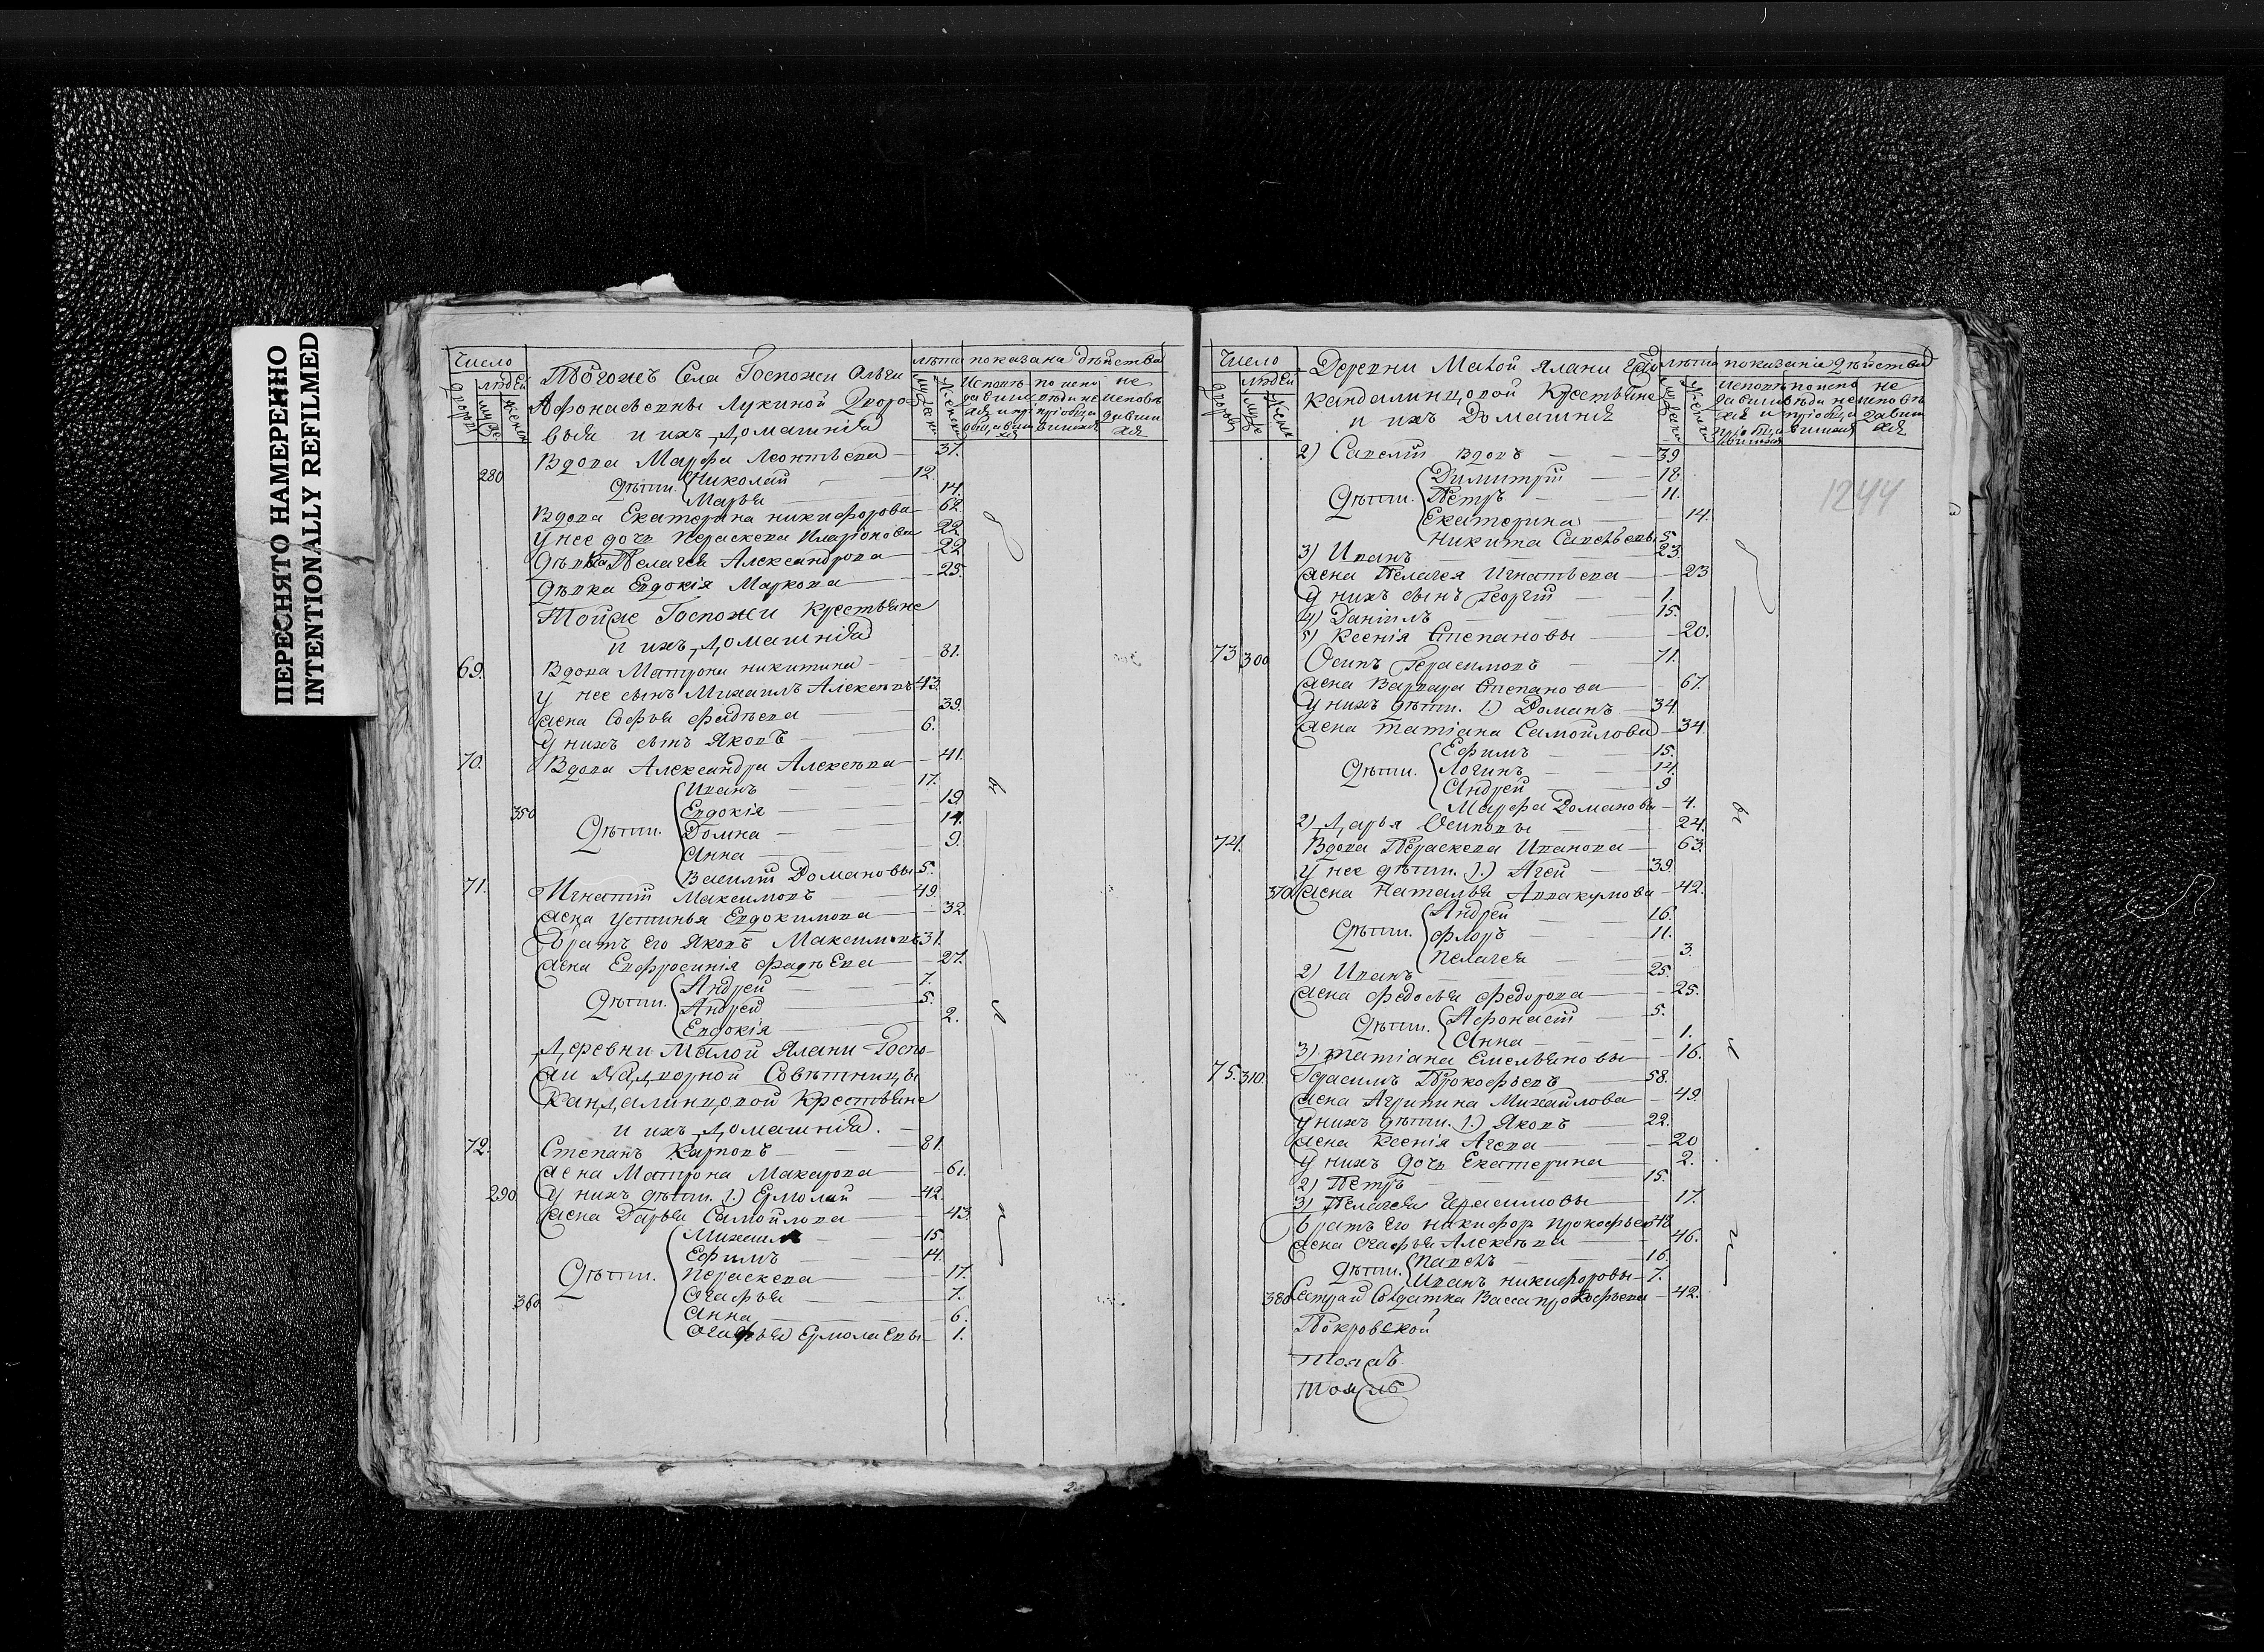 ПЕРЕСНЯТО НАМЕРЕННО
INTENTIONALLY REFILMED
Число
лѣта показана дѣйства
Тогожъ Села Госпожи Ольги
Афонасьевны Лукиной Дворо-
выя и ихъ Домашнія
Вдова Марфа Леонтьева 37.
280 Дѣти. Николай 12.
Марья 14.
Вдова Екатерина никифорова 62.
У нее дочь Параскева Иларіонова 22
Дѣвка Пелагея Александрова 22.
Дѣвка Евдокія Маркова 25.
Тойже Госпожи Крестьяне
и ихъ Домашнія
69. Вдова Матрона никитина 81.
у нее сынъ Михаилъ Алексѣевъ 43.
жена Софья Фадѣева 39.
У нихъ сынъ Яковъ 6.
70. Вдова Александра Алексѣева 41.
Иванъ 17.
350 Евдокія 19.
Дѣти. Домна 14.
Анна 9.
Василій Домановы 5.
71. Игнатій Максимовъ 49.
жена Устинья Евдокимова 32.
Братъ его Яковъ Максимовъ 31.
жена Евфросинія Фадѣева 27.
Андрей 7.
Дѣти. Андрей 5.
Евдокія 2.
Деревни Малой Ялани Госпо-
жи Надворной Совѣтницы
Кандалинцовой Крестьяне
и ихъ Домашнія.
72. Степанъ Карповъ 81.
жена Матрона Макарова 61.
290 У нихъ дѣти. 1.) Ермолай 42.
жена Дарья Самойлова 43.
Михаилъ 15.
Ефимъ 14.
Дѣти. Параскева 17.
360 Агафья 7.
Анна 6.
Агафья Ермолаевы 1.
Число
лѣта показаніе дѣйства
Деревни Малой Ялани
Кандалинцовой Крестьяне
и ихъ Домашнія
1244
2) Савелій вдовъ 39
Димитрій 18.
Дѣти. Петръ 11.
Екатерина 14.
Никита Савельевы 5
3) Иванъ 23.
жена Пелагея Игнатьева 23
У нихъ сынъ Георгій 1.
4) Даніилъ 15.
5) Ксенія Степановы 20.
73. 300 Осипъ Герасимовъ 71.
жена Варвара Степанова 67.
У нихъ дѣти. 1.) Доманъ 34.
жена Татіана Самойлова 34.
Ефимъ 15.
Дѣти. Логинъ 14.
Андрей 9
Марфа Домановы 4.
2) Дарья Осиповы 24.
74. Вдова Параскева Иванова 63.
У нее дѣти. 1.) Агей 39.
370 жена Наталья Аввакумова 42.
Андрей 16.
Дѣти. Флоръ 11.
Пелагея 3.
2) Иванъ 25.
жена Федосья Федорова 25.
Дѣти. Афонасій 5.
Анна 1.
3) Татіана Емельяновы 16.
75. 310. Герасимъ Прокофьевъ 58.
жена Агрипина Михайлова 49.
У нихъ дѣти. 1.) Яковъ 22.
жена Ксенія Агева 20
У нихъ дочь Екатерина 2.
2) Петръ 15.
3) Пелагея Герасимовы 17.
братъ его никифор прокофьев 48
жена Агафья Алексѣева 46.
дѣти. Павелъ 16
Иванъ никифоровы 7.
380 Солдатка Васса прокофьева 42.
Покровской